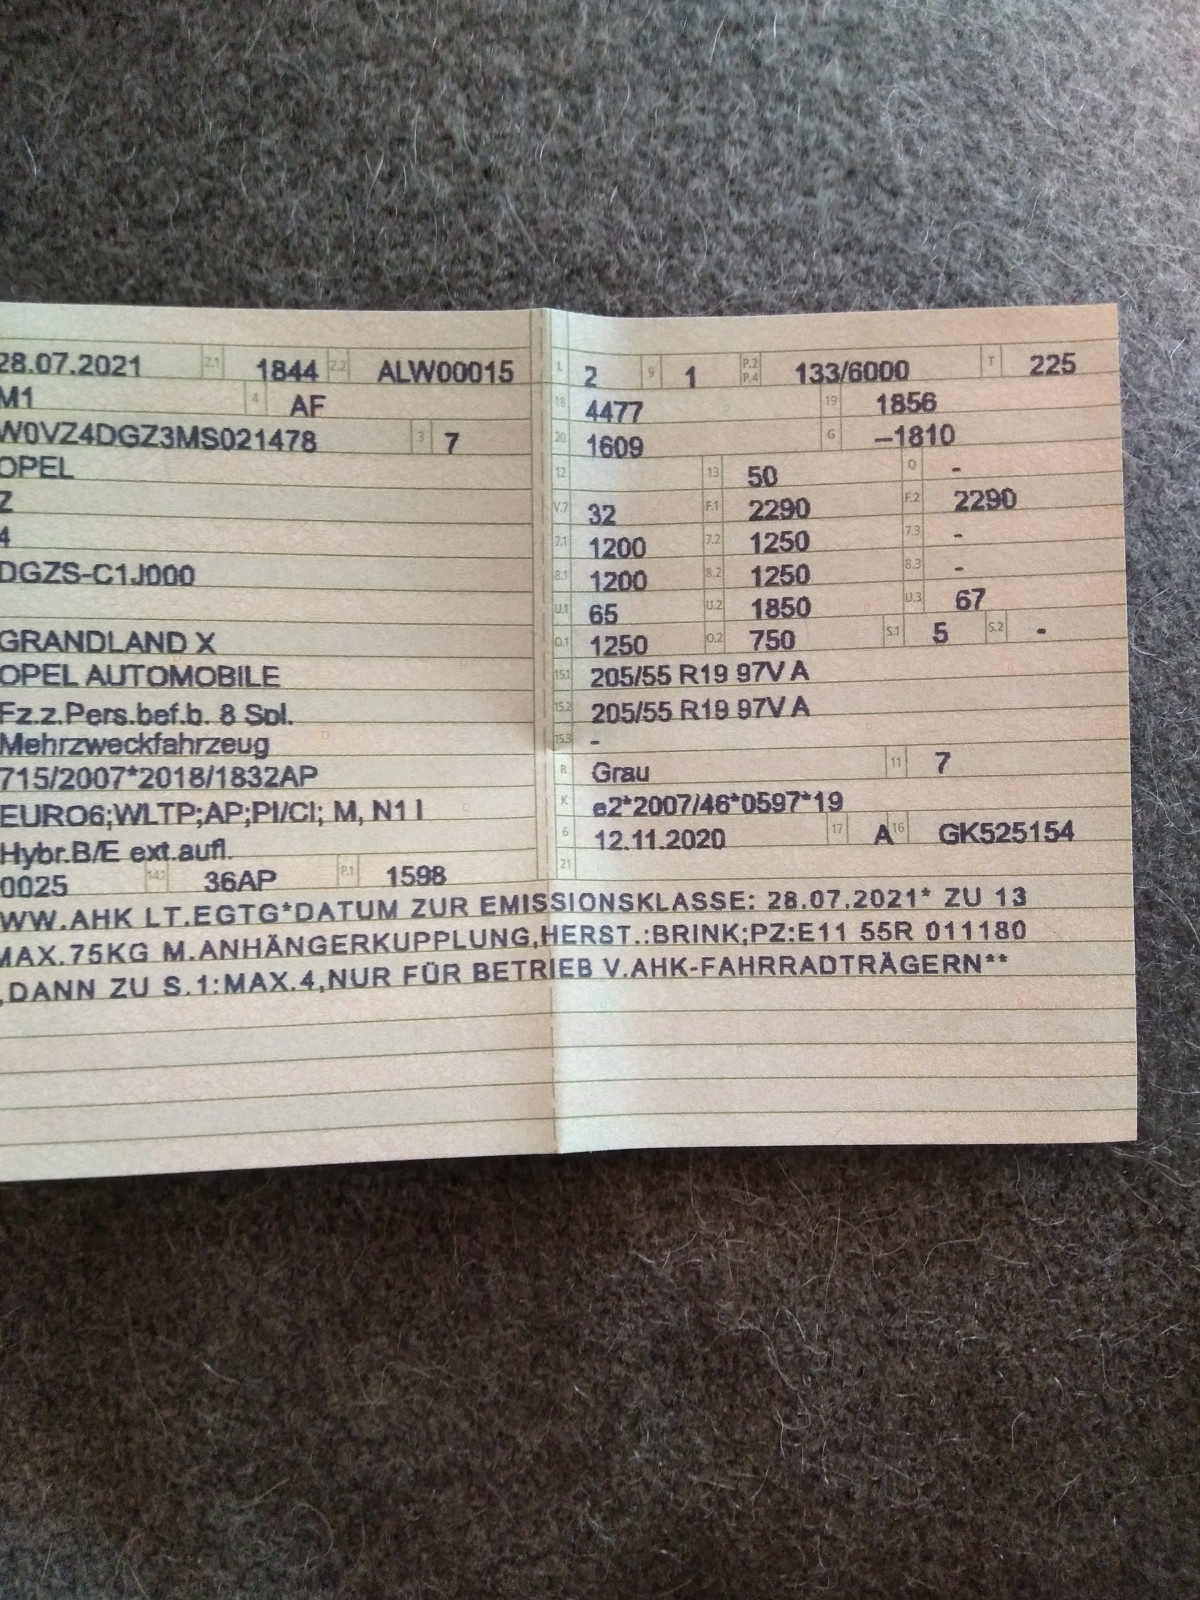 28.07.2021 2.1 1844 2.2 ALW00015
M1 4 AF
W0VZ4DGZ3MS021478 3 7
OPEL
Z
4
DGZS-C1J000
GRANDLAND X
OPEL AUTOMOBILE
Fz.z.Pers.bef.b. 8 Spl.
Mehrzweckfahrzeug
715/2007*2018/1832AP
EURO6;WLTP;AP;PI/CI; M, N1 I
Hybr.B/E ext.aufl.
0025 14.1 36AP P.1 1598
L 2 9 1 P.2 P.4 133/6000 T 225
18 4477 19 1856
20 1609 G –1810
12 13 50 Q -
V.7 32 F.1 2290 F.2 2290
7.1 1200 7.2 1250 7.3 -
8.1 1200 8.2 1250 8.3 -
U.1 65 U.2 1850 U.3 67
O.1 1250 O.2 750 S.1 5 S.2 -
15.1 205/55 R19 97V A
15.2 205/55 R19 97V A
15.3 -
R Grau 11 7
K e2*2007/46*0597*19
6 12.11.2020 17 A 16 GK525154
21
WW.AHK LT.EGTG*DATUM ZUR EMISSIONSKLASSE: 28.07.2021* ZU 13
MAX.75KG M.ANHÄNGERKUPPLUNG,HERST.:BRINK;PZ:E11 55R 011180
,DANN ZU S.1:MAX.4,NUR FÜR BETRIEB V.AHK-FAHRRADTRÄGERN**